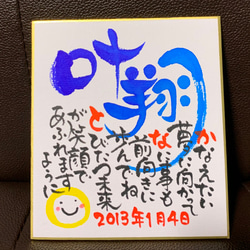 叶翔
かなえたい
夢に向かって
なに事も
前向きに
歩んでね
とびたつ未来
が笑顔で
あふれます
ように
2013年1月4日